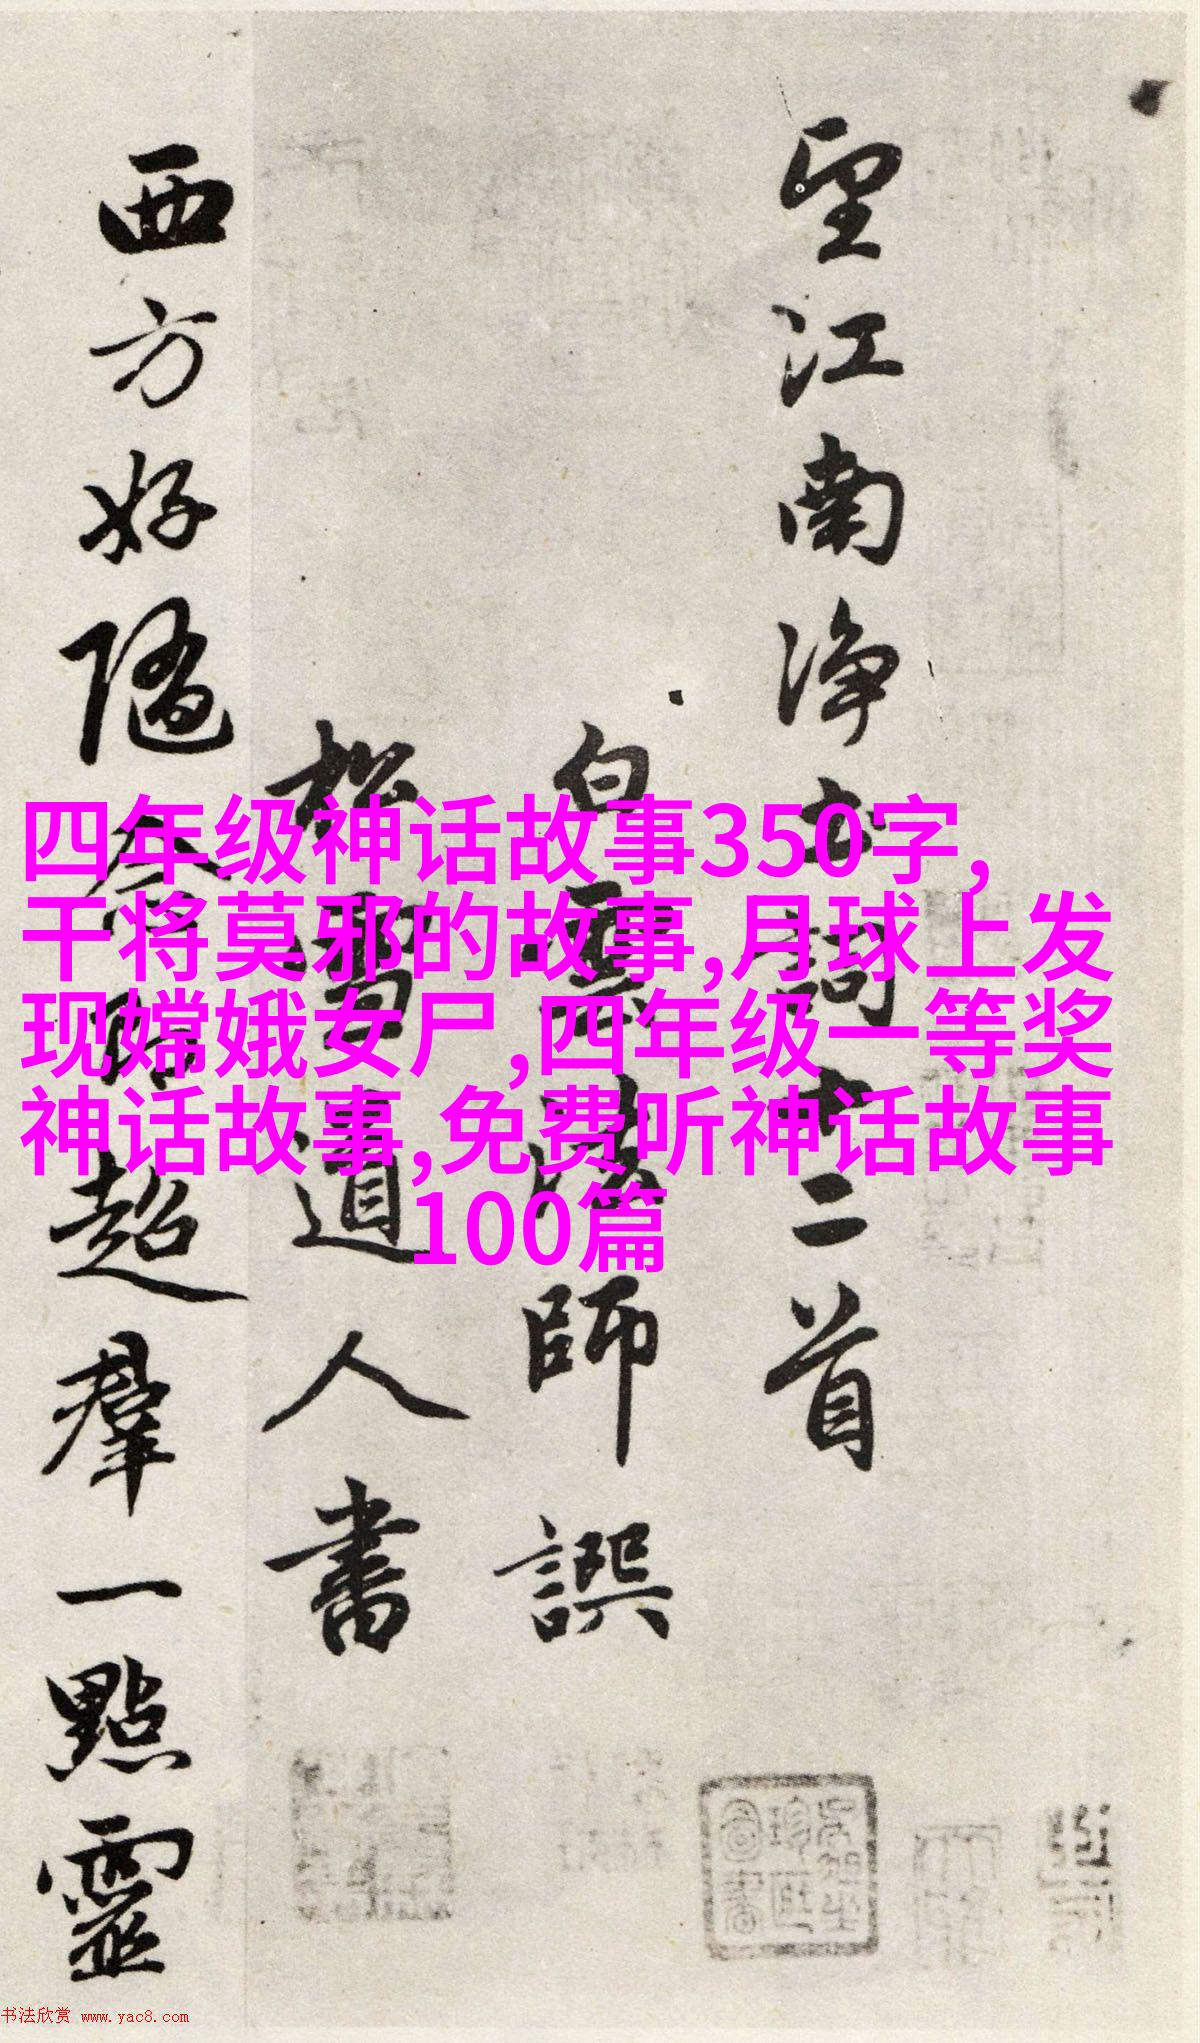 望江南淨土詞十二首
白雲法師譔
松雪道人書
西方好隨念即超羣一點靈
四年级神话故事350字,
干将莫邪的故事,月球上发
现嫦娥女尸,四年级一等奖
神话故事,免费听神话故事
100篇
书法欣赏 www.yac8.com